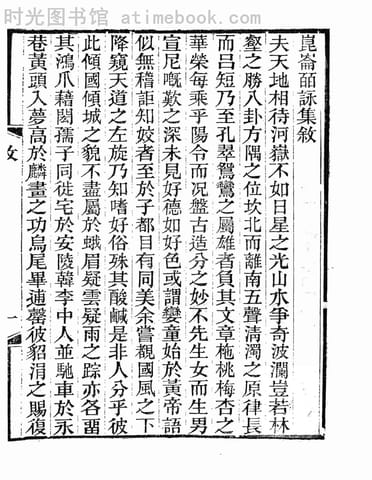 时光图书馆 atimebook.com
崑崙皕詠集敘
夫天地相待河嶽不如日星之光山水爭奇波瀾豈若林
壑之勝八卦方隅之位坎北而離南五聲清濁之原律長
而呂短乃至孔翠鴛鸞之屬雄者負其文章梔桃梅杏之
華榮每乘乎陽令而况盤古造分之妙不先生女而生男
宣尼嘅歎之深未見好德如好色或謂孌童始於黃帝語
似無稽詎知姣者至於子都目有同美余嘗觀國風之下
降窺天道之左旋乃知嗜好俗殊其酸鹹是非人分乎彼
此傾國傾城之貌不盡屬於蛾眉疑雲疑雨之踪亦各畱
其鴻爪藉閎孺子同徙宅於安陵韓李中人並馳車於永
巷黃頭入夢高於麟畫之功烏尾畢逋聲彼貂涓之賜復
敘
一